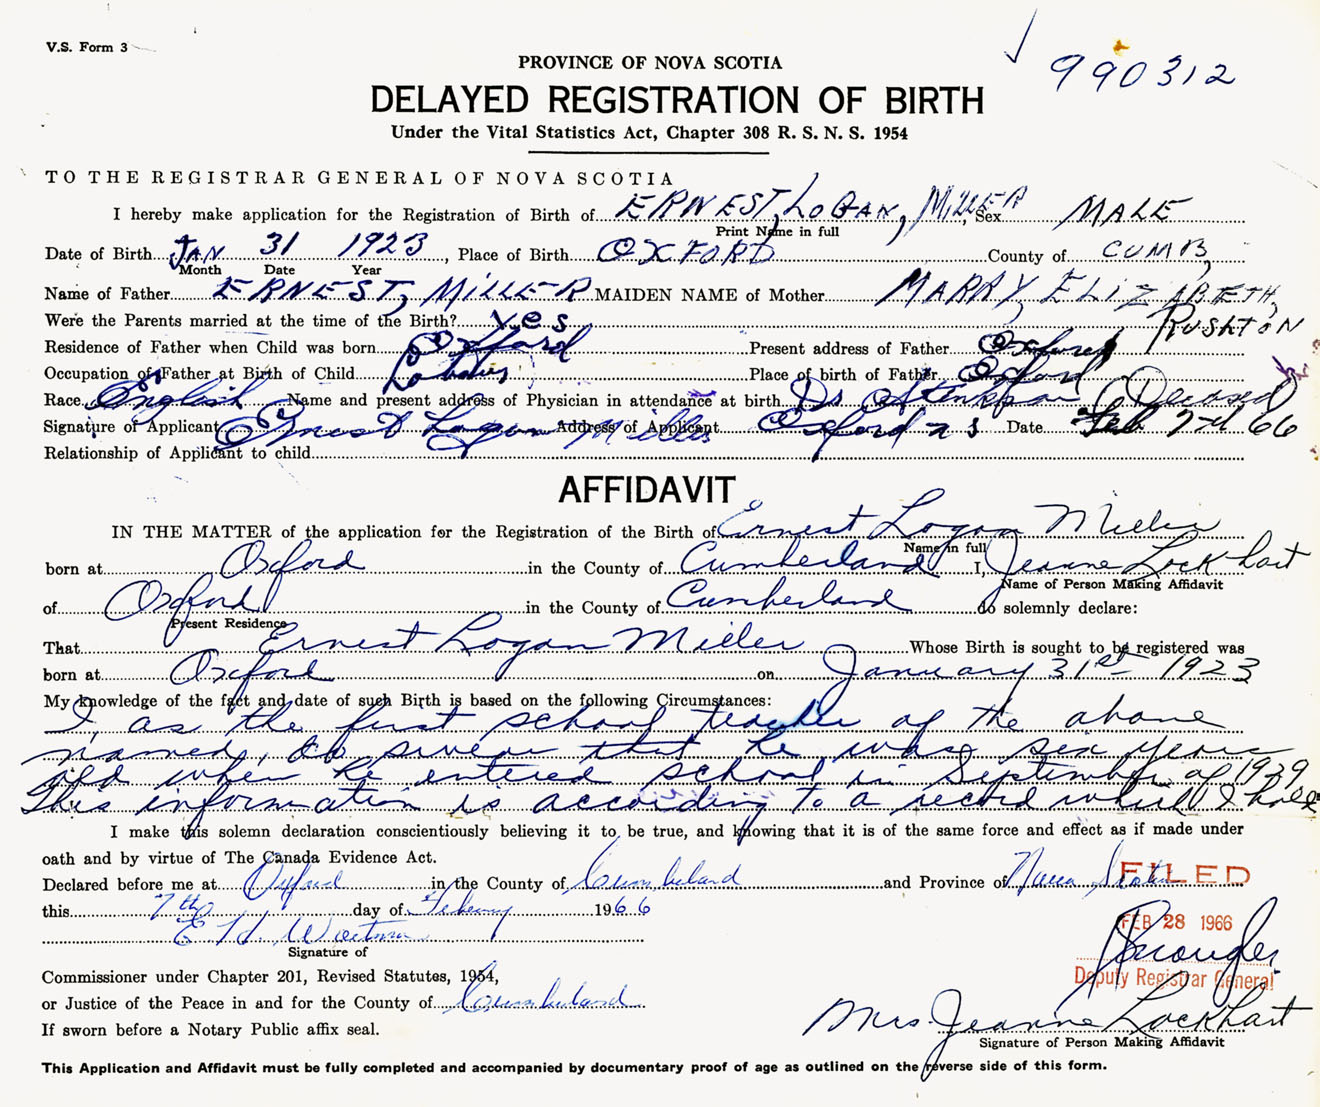 V.S. Form 3
990312
PROVINCE OF NOVA SCOTIA
DELAYED REGISTRATION OF BIRTH
Under the Vital Statistics Act, Chapter 308 R. S. N. S. 1954
TO THE REGISTRAR GENERAL OF NOVA SCOTIA
I hereby make application for the Registration of Birth of ERNEST, LOGAN, MILLER Sex MALE
Print Name in full
Date of Birth JAN 31 1923, Place of Birth OXFORD County of CUMB,
Month Date Year
Name of Father ERNEST, MILLER MAIDEN NAME of Mother MARAY, ELIZABETH,
Were the Parents married at the time of the Birth? yes RUSHTON
Residence of Father when Child was born Oxford Present address of Father Oxford
Occupation of Father at Birth of Child Place of birth of Father Oxford
Race English Name and present address of Physician in attendance at birth Dr
Signature of Applicant Ernest Logan Miller Address of Applicant Oxford n s Date Feb 7th 66
Relationship of Applicant to child
AFFIDAVIT
IN THE MATTER of the application for the Registration of the Birth of Ernest Logan Miller
Name in full
born at Oxford in the County of Cumberland I, Jeanne Lockhart
Name of Person Making Affidavit
of Oxford in the County of Cumberland do solemnly declare:
Present Residence
That Ernest Logan Miller Whose Birth is sought to be registered was
born at Oxford on January 31st 1923
My knowledge of the fact and date of such Birth is based on the following Circumstances:
I, as the first school teacher of the above
named, do swear that he was six years
old when he entered school in September of 1929
This information is according to a record which I hold
I make this solemn declaration conscientiously believing it to be true, and knowing that it is of the same force and effect as if made under
oath and by virtue of The Canada Evidence Act.
Declared before me at Oxford in the County of Cumberland and Province of Nova Scotia
FILED
this 7th day of February 1966
FEB 28 1966
Signature of
Deputy Registrar General
Commissioner under Chapter 201, Revised Statutes, 1954,
or Justice of the Peace in and for the County of Cumberland
Mrs. Jeanne Lockhart
If sworn before a Notary Public affix seal.
Signature of Person Making Affidavit
This Application and Affidavit must be fully completed and accompanied by documentary proof of age as outlined on the reverse side of this form.